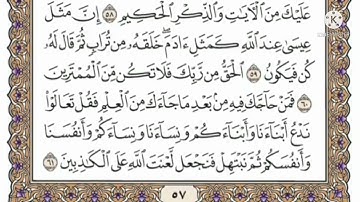 عَلَيْكَ مِنَ الْآيَاتِ وَالذِّكْرِ الْحَكِيمِ ٥٨ إِنَّ مَثَلَ
عِيسَى عِندَ اللَّهِ كَمَثَلِ ءَادَمَ خَلَقَهُ مِن تُرَابٍ ثُمَّ قَالَ لَهُ
كُن فَيَكُونُ ٥٩ الْحَقُّ مِن رَّبِّكَ فَلَا تَكُن مِّنَ الْمُمْتَرِينَ
٦٠ فَمَنْ حَاجَّكَ فِيهِ مِن بَعْدِ مَا جَاءَكَ مِنَ الْعِلْمِ فَقُلْ تَعَالَوْا
نَدْعُ أَبْنَاءَنَا وَأَبْنَاءَكُمْ وَنِسَاءَنَا وَنِسَاءَكُمْ وَأَنفُسَنَا
وَأَنفُسَكُمْ ثُمَّ نَبْتَهِلْ فَنَجْعَل لَّعْنَتَ اللَّهِ عَلَى الْكَاذِبِينَ ٦١
٥٧